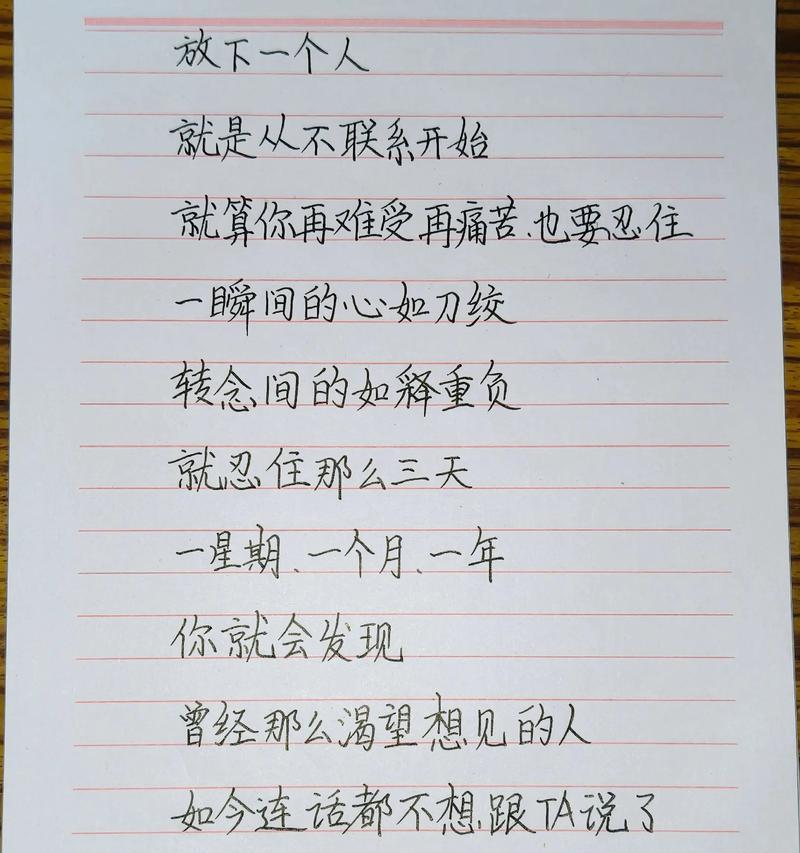 放下一个人
就是从不联系开始
就算你再难受再痛苦、也要忍住
一瞬间的心如刀绞
转念间的如释重负
就忍住那么三天
一星期、一个月、一年
你就会发现
曾经那么渴望想见的人
如今连话都不想跟TA说了